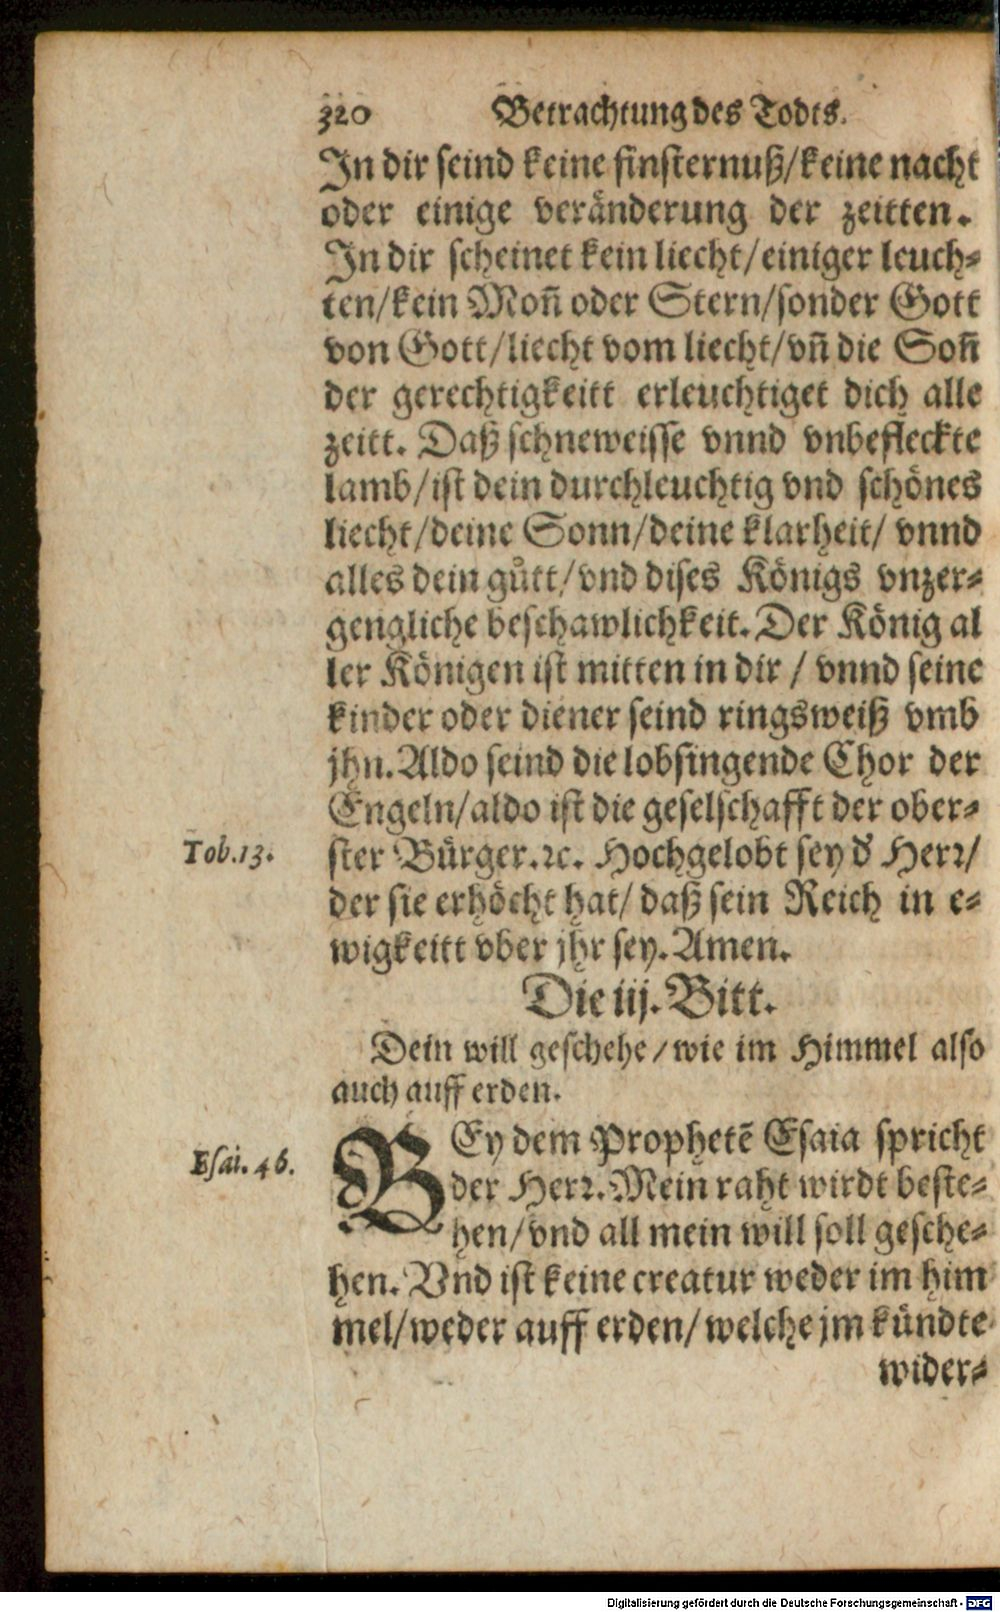 320 Betrachtung des Todts.
In dir seind keine finsternuß/keine nacht
oder einige veränderung der zeitten.
In dir scheinet kein liecht/einiger leuch⸗
ten/kein Mon̄ oder Stern/sonder Gott
von Gott/liecht vom liecht/vn̄ die Son̄
der gerechtigkeitt erleuchtiget dich alle
zeitt. Daß schneweisse vnnd vnbefleckte
lamb/ist dein durchleuchtig vnd schönes
liecht/deine Sonn/deine klarheit/ vnnd
alles dein gůtt/vnd dises Königs vnzer⸗
gengliche beschawlichkeit. Der König al
ler Königen ist mitten in dir / vnnd seine
kinder oder diener seind ringsweiß vmb
jhn. Aldo seind die lobsingende Chor der
Engeln/aldo ist die geselschafft der ober⸗
Tob.13.
ster Bürger.ꝛc. Hochgelobt sey d' Herꝛ/
der sie erhöcht hat/ daß sein Reich in e⸗
wigkeitt vber jhr sey. Amen.
Die iij. Bitt.
Dein will geschehe/wie im Himmel also
auch auff erden.
BEy dem Prophetē Esaia spricht
Esai.46.
der Herꝛ. Mein raht wirdt beste⸗
hen/vnd all mein will soll gesche⸗
hen. Vnd ist keine creatur weder im him
mel/weder auff erden/welche jm kündte
wider⸗
Digitalisierung gefördert durch die Deutsche Forschungsgemeinschaft - DFG